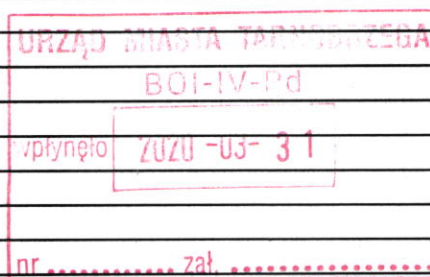 URZĄD MIASTA TARNOBRZEGA
BOI-IV-Pd
wpłynęło 2020 -03- 31
nr ............ zał. ..................